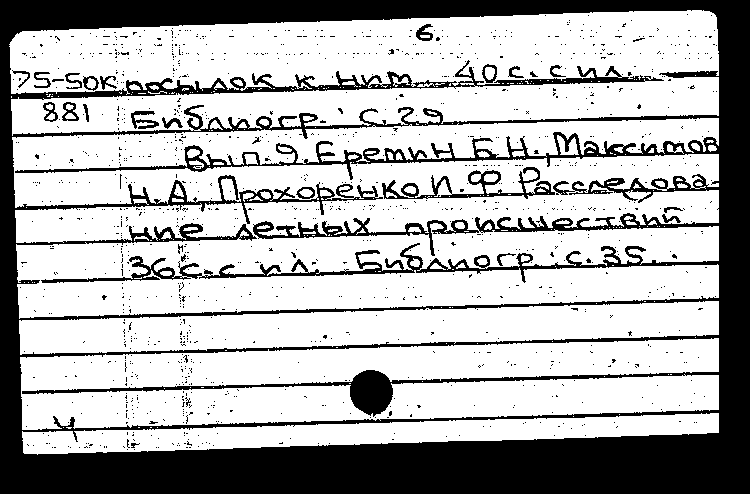 6.
75-50к посылок к ним 40 с. с ил.
881 Библиогр. с. 29
Вып. 9. Еремин Б.Н., Максимов
Н.А., Прохоренко И.Ф. Расследова-
ние летных происшествий
36 с. с ил. Библиогр. с. 35.
Ч